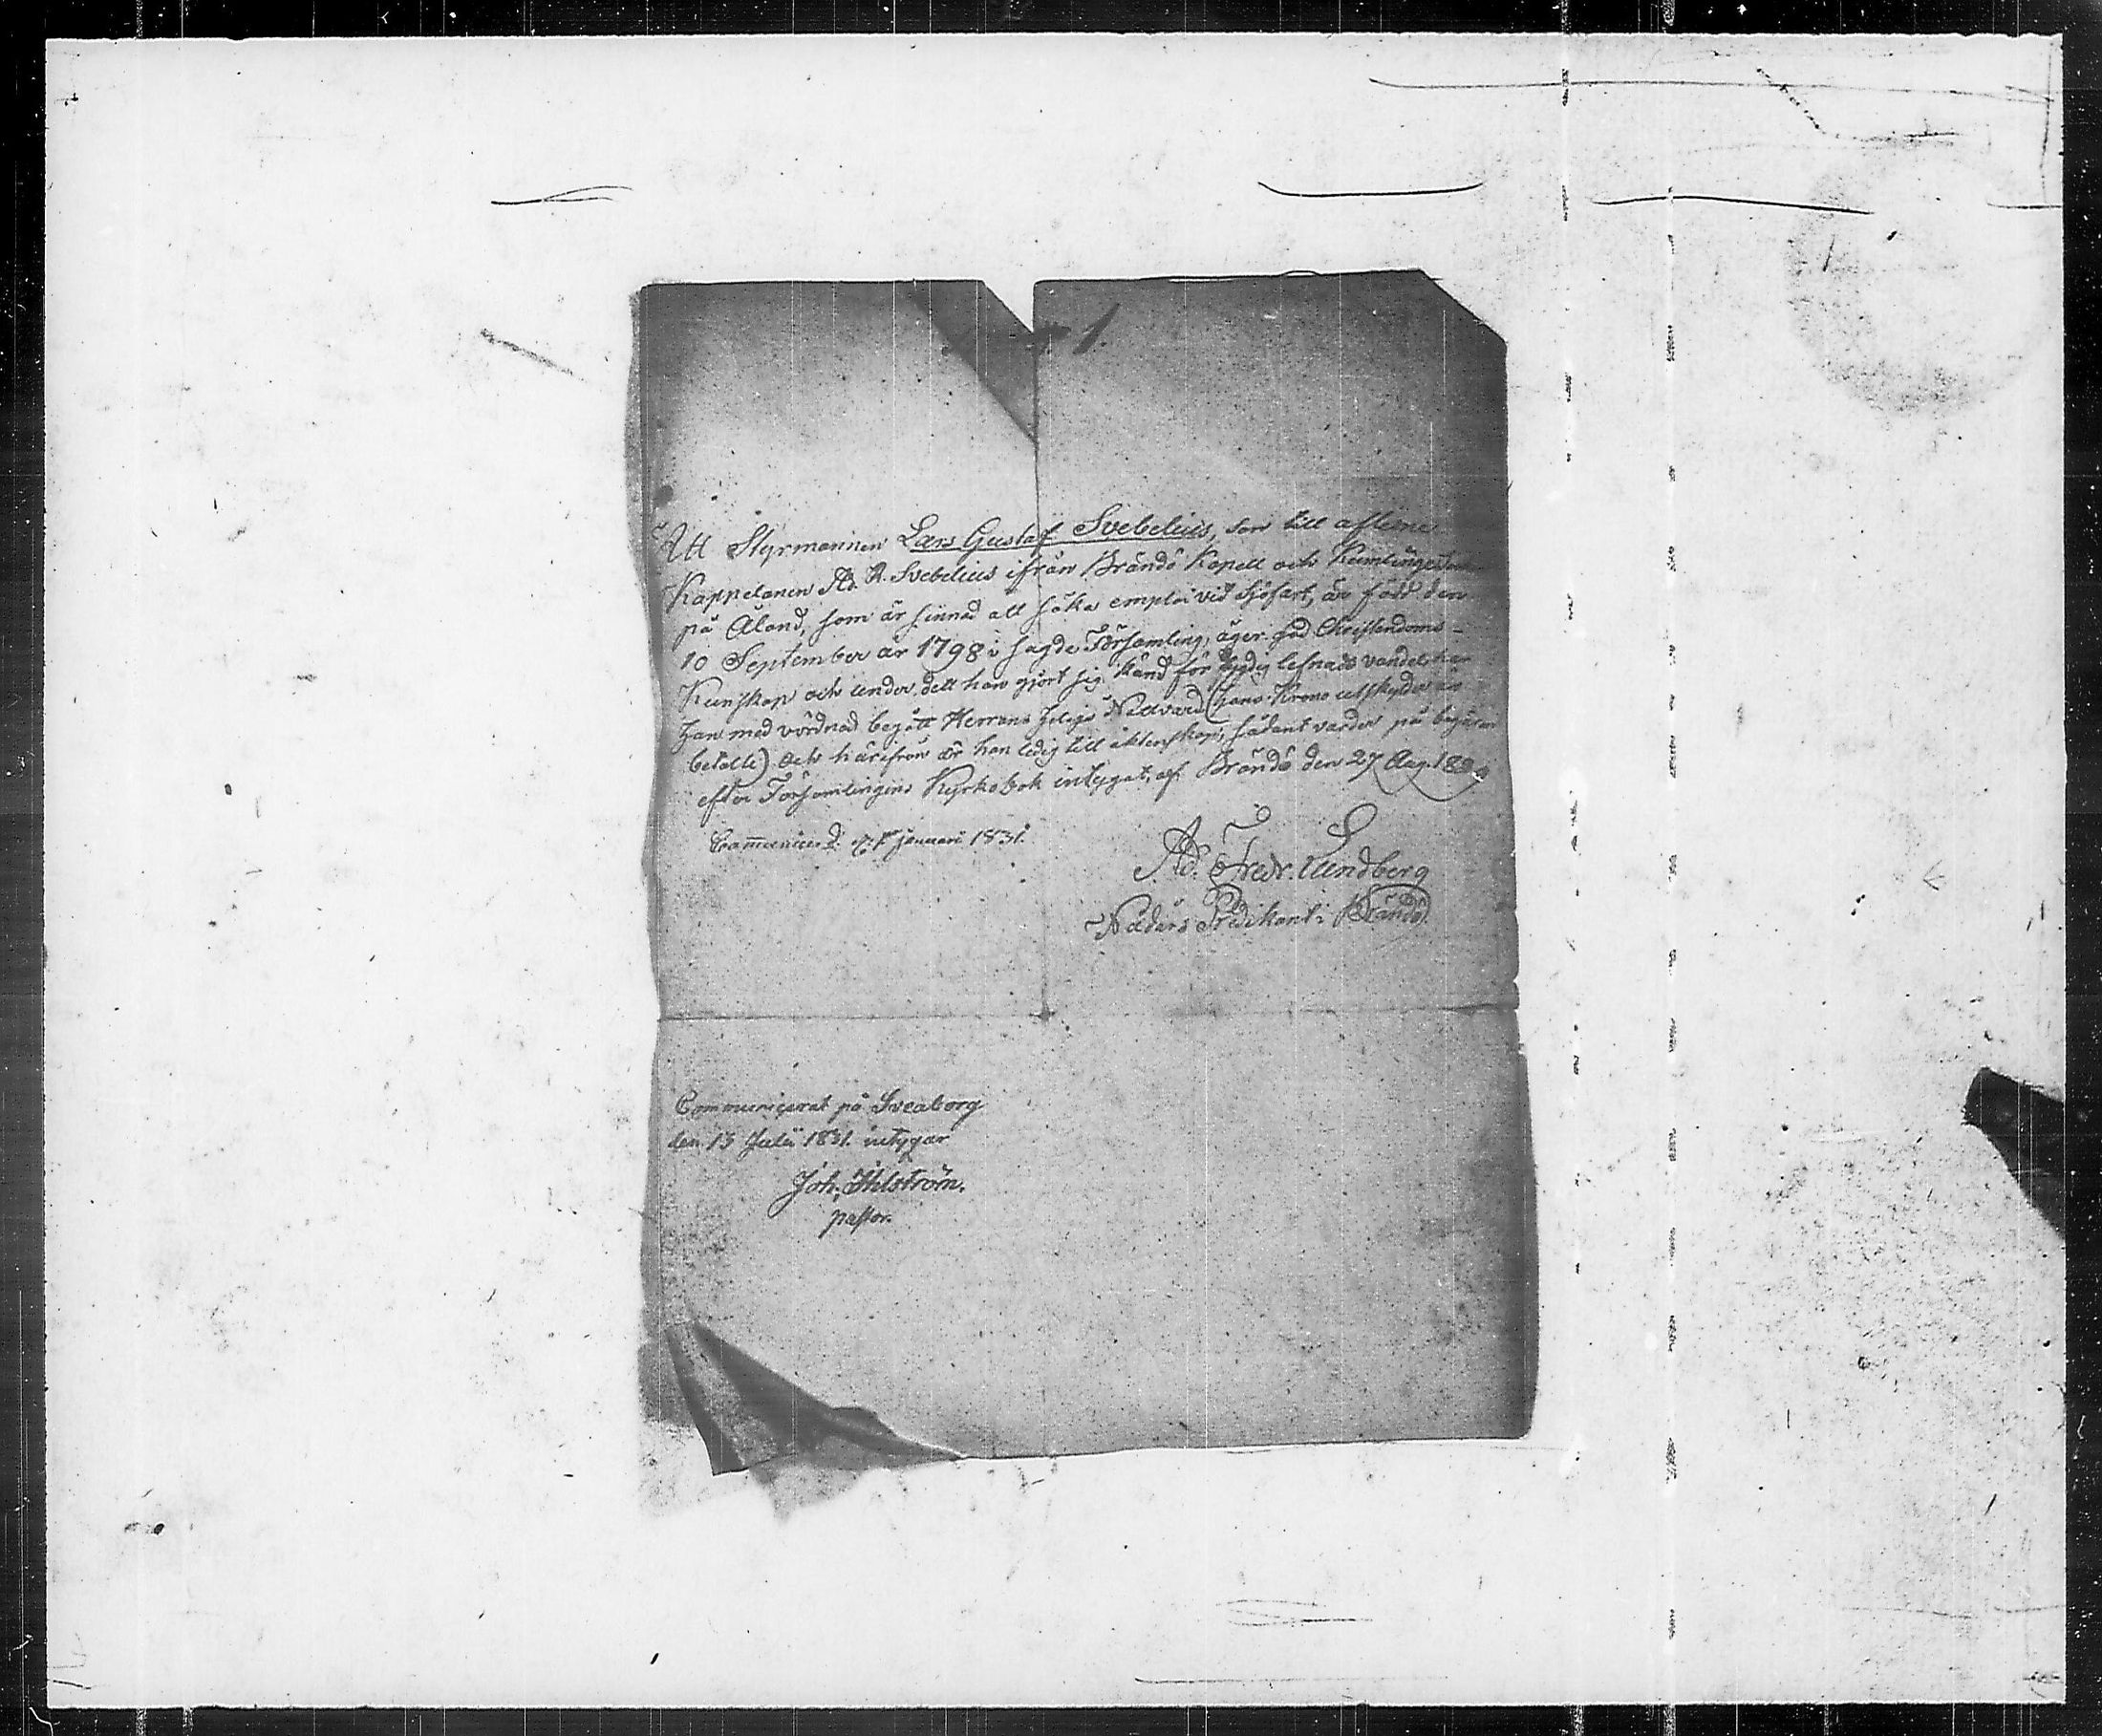 1.
Att Styrmannen Lars Gustaf Svebelius, son till aflidne
Kappelanen Ad. R. Svebelius ifrån Brändö Kapell och Kumlinge
på Åland, som är sinnad att söka emploi vid sjöfart, är född den
10 September år 1798 i sagde Församling, äger god Christendoms-
Kunskap och under det han gjort sig känd för lefnads vandel, har
han med vördnad begått Herrans Heliga Nattvard (hans Krono utskylder äro
betalte) och härifrån är han ledig till äktenskap; sådant varder på begäran
efter Församlingens Kyrkobok intygat, af Brändö den 27 Aug.
d. Januari 1831.
Ad. Fredr. Lundberg
Nådårs Predikant i Brändö.
Communicerat på Sveaborg
den 13 Julii 1831. intygar
Joh. Ahlström.
pastor.